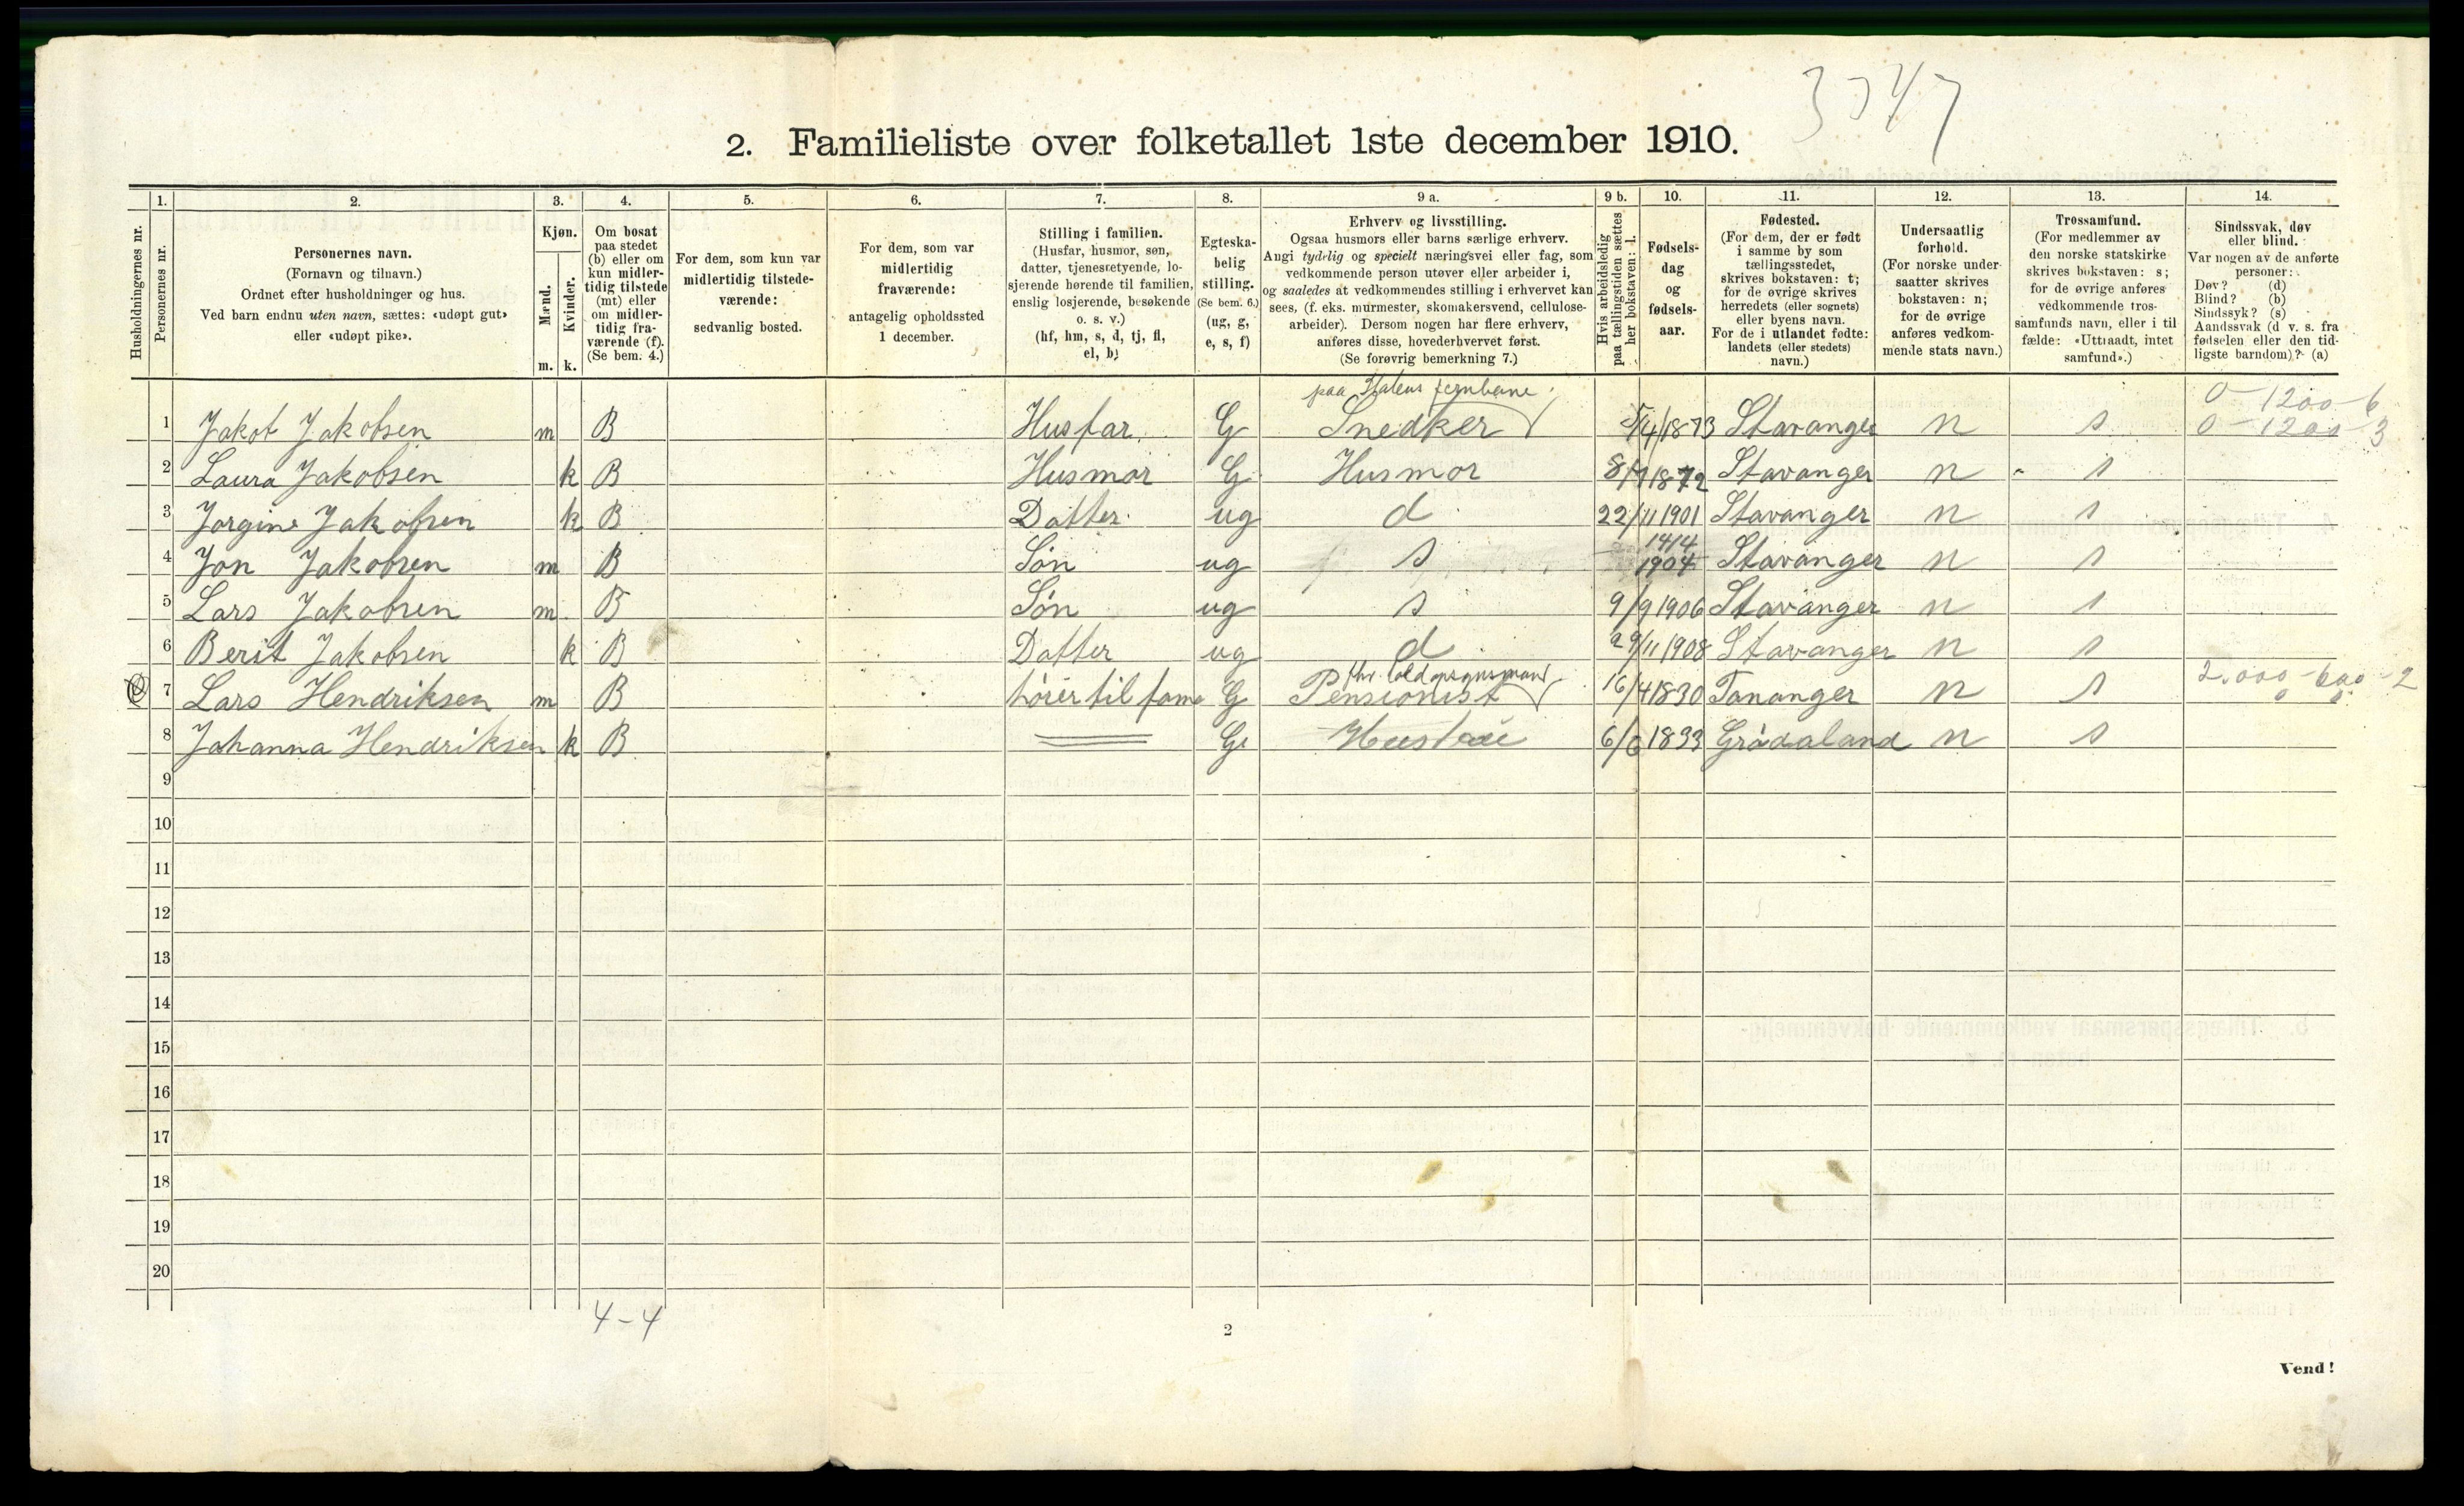 3747
2. Familieliste over folketallet 1ste december 1910.
Husholdningernes nr.
1. Personernes nr.
2. Personernes navn.
(Fornavn og tilnavn.)
Ordnet efter husholdninger og hus.
Ved barn endnu uten navn, sættes: «udøpt gut»
eller «udøpt pike».
3. Kjøn.
Mænd. m.
Kvinder. k.
4. Om bosat
paa stedet
(b) eller om
kun midler-
tidig tilstede
(mt) eller
om midler-
tidig fra-
værende (f).
(Se bem. 4.)
5. For dem, som kun var
midlertidig tilstede-
værende:
sedvanlig bosted.
6. For dem, som var
midlertidig
fraværende:
antagelig opholdssted
1 december.
7. Stilling i familien.
(Husfar, husmor, søn,
datter, tjenestetyende, lo-
sjerende hørende til familien,
enslig losjerende, besøkende
o. s. v.)
(hf, hm, s, d, tj, fl,
el, b)
8. Egteska-
belig
stilling.
(Se bem. 6.)
(ug, g,
e, s, f)
9 a. Erhverv og livsstilling.
Ogsaa husmors eller barns særlige erhverv.
Angi tydelig og specielt næringsvei eller fag, som
vedkommende person utøver eller arbeider i,
og saaledes at vedkommendes stilling i erhvervet kan
sees, (f. eks. murmester, skomakersvend, cellulose-
arbeider). Dersom nogen har flere erhverv,
anføres disse, hovederhvervet først.
(Se forøvrig bemerkning 7.)
9 b. Hvis arbeidsledig
paa tællingstiden sættes
her bokstaven: l.
10. Fødsels-
dag
og
fødsels-
aar.
11. Fødested.
(For dem, der er født
i samme by som
tællingsstedet,
skrives bokstaven: t;
for de øvrige skrives
herredets (eller sognets)
eller byens navn.
For de i utlandet fødte:
landets (eller stedets)
navn.)
12. Undersaatlig
forhold.
(For norske under-
saatter skrives
bokstaven: n;
for de øvrige
anføres vedkom-
mende stats navn.)
13. Trossamfund.
(For medlemmer av
den norske statskirke
skrives bokstaven: s;
for de øvrige anføres
vedkommende tros-
samfunds navn, eller i til
fælde: «Uttraadt, intet
samfund».)
14. Sindssvak, døv
eller blind.
Var nogen av de anførte
personer:
Døv? (d)
Blind? (b)
Sindssyk? (s)
Aandssvak (d v. s. fra
fødselen eller den tid-
ligste barndom)? (a)
paa Statens jernbane 0-1200-6
1 Jakob Jakobsen m B Husfar. G Snedker 5/4/1873 Stavanger n s 0-1200-3
2 Laura Jakobsen k B Husmor G Husmor 1872 Stavanger n s
3 Jorgine Jakobsen k B Datter ug d 22/11 1901 Stavanger n s
4 Jon Jakobsen m B Søn ug s 14/4 1904 Stavanger n s
5 Lars Jakobsen m B Søn ug s 9/9 1906 Stavanger n s
6 Berit Jakobsen k B Datter ug d 29/11 1908 Stavanger n s
7 Lars Hendriksen m B hører til fam G Pensionist 16/4 1830 Tananger n s 2.000-600-2
8 Johanna Hendriksen k B G Hustru 6/6 1833 Grødaland n s
9
10
11
12
13
14
15
16
17
18
19
20
4-4
2
Vend!